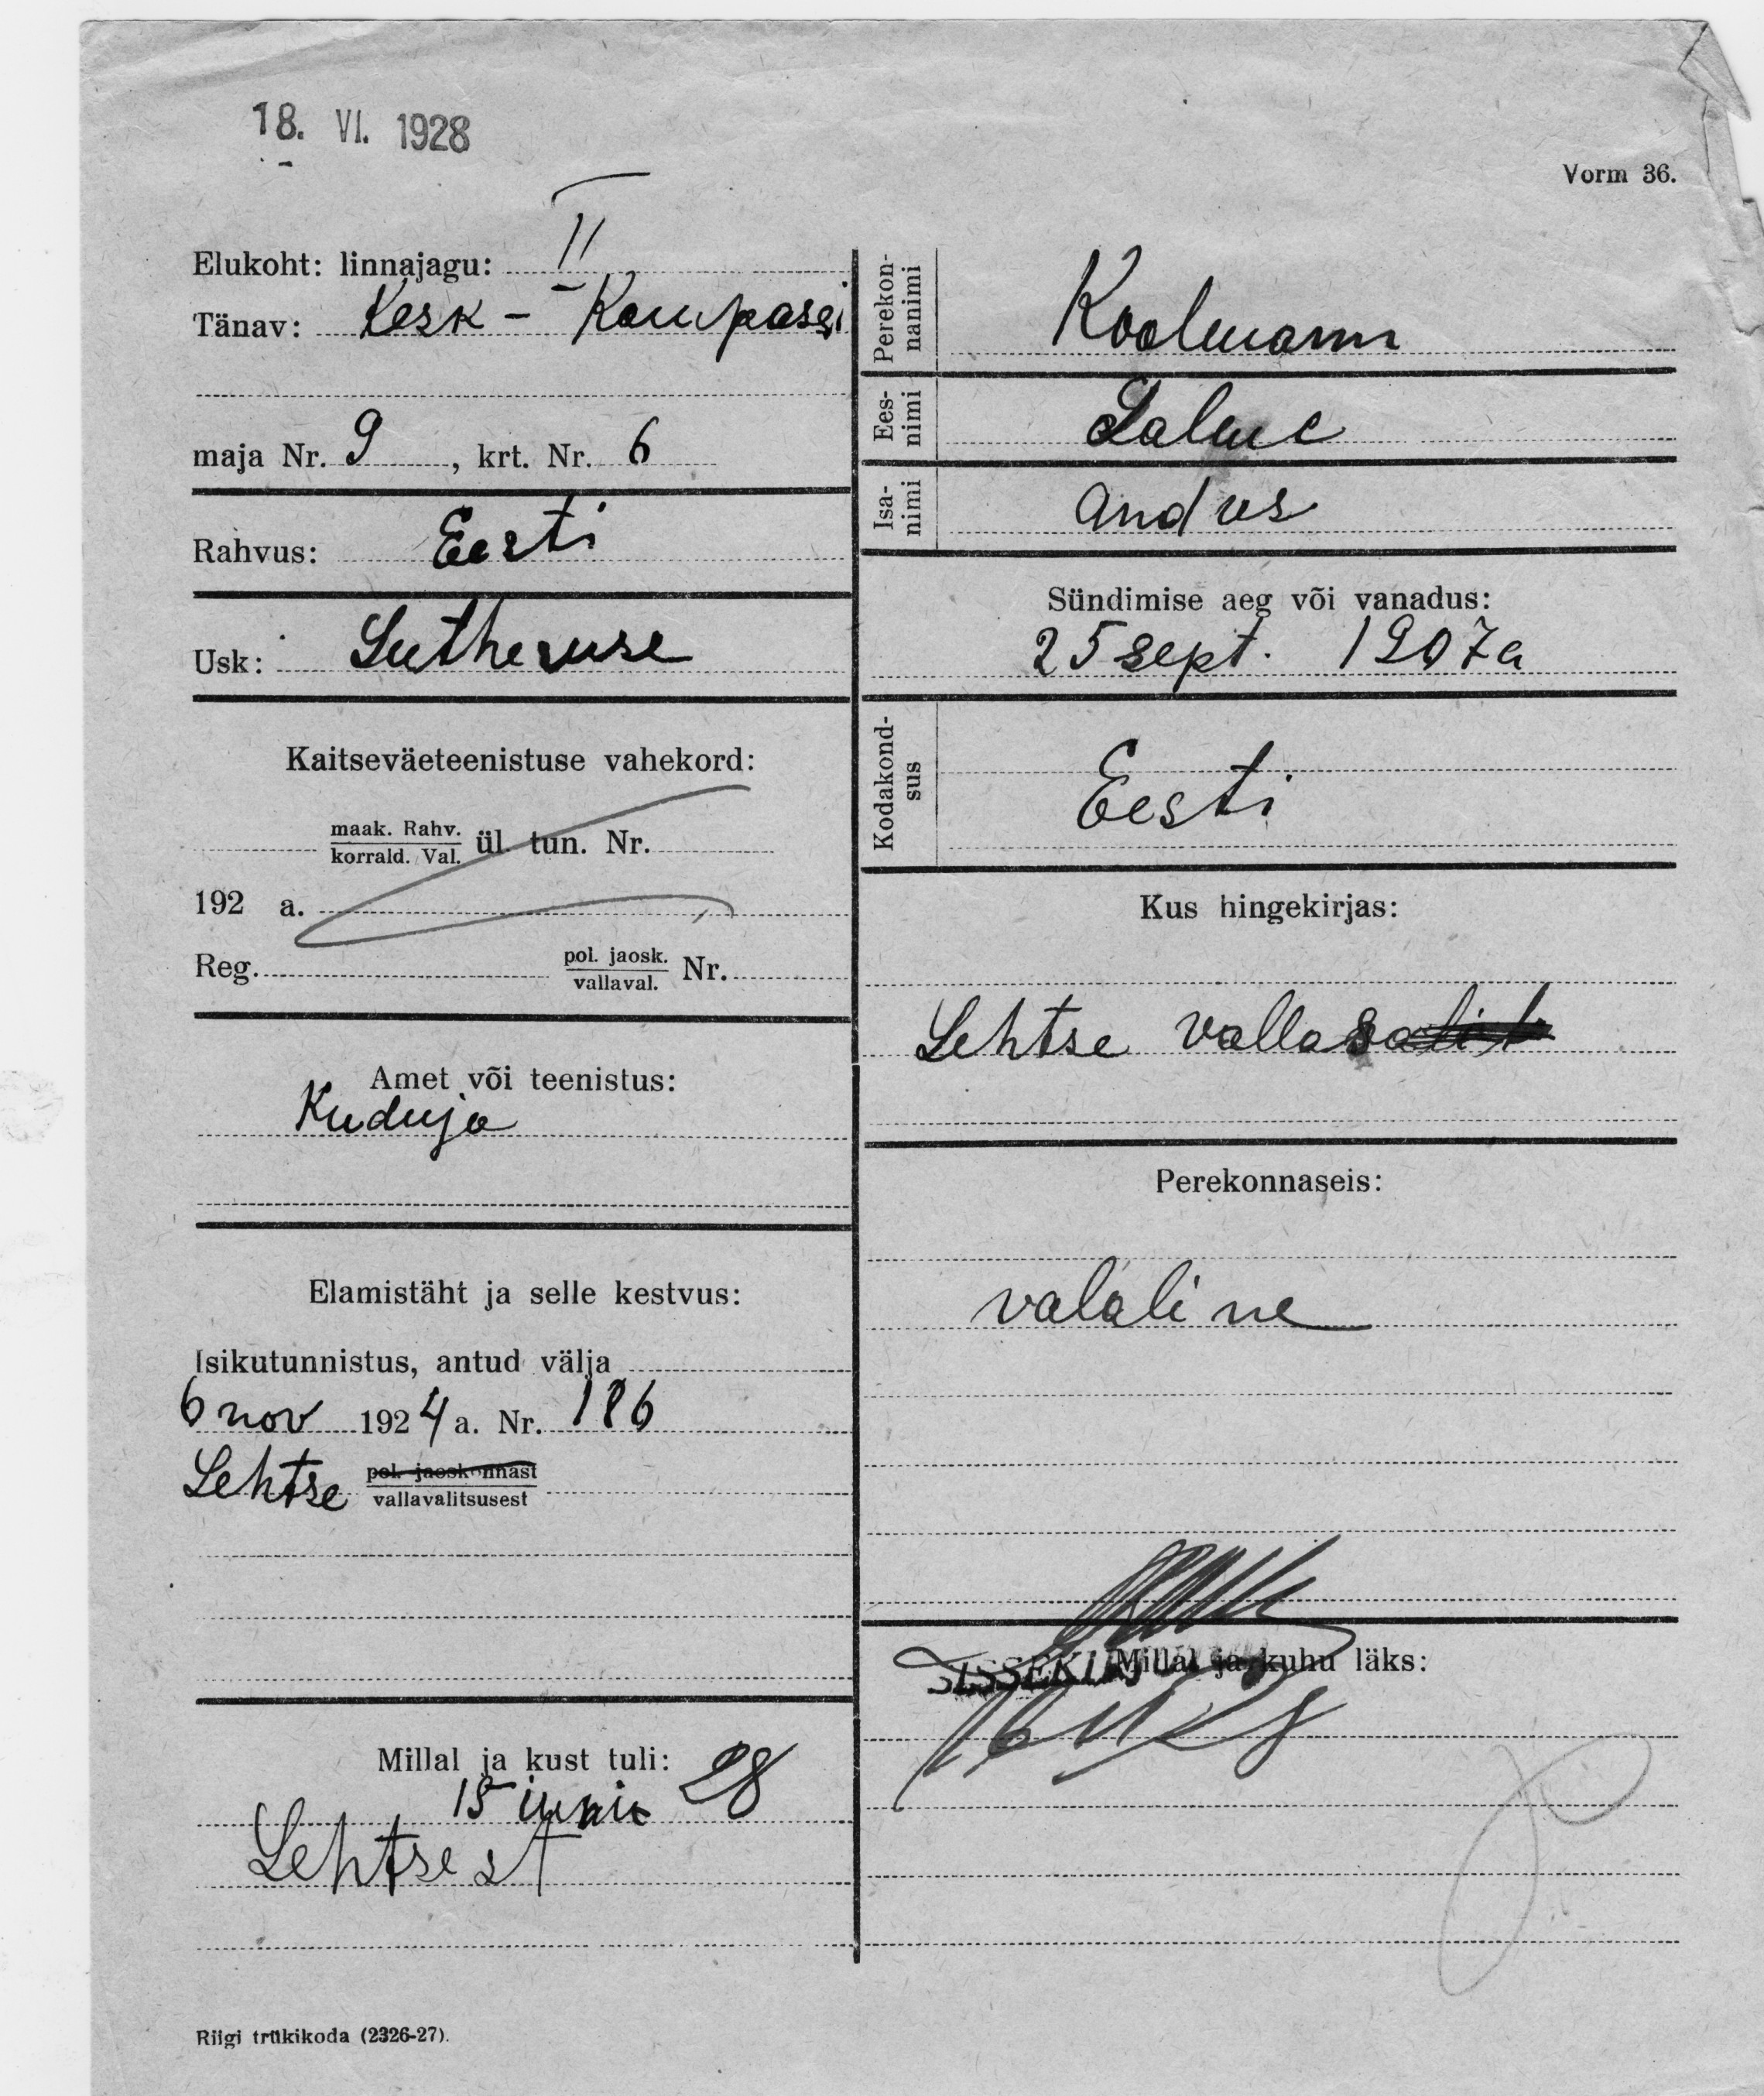 18. VI. 1928
Vorm 36.
Elukoht: linnajagu: II
Tänav: Kesk - Kompassi
maja Nr. 9, krt. Nr. 6
Rahvus: Eesti
Usk: Lutheruse
Kaitseväeteenistuse vahekord:
maak. Rahv.
korrald. Val. ül. tun. Nr.
192 a.
Reg. pol. jaosk.
vallaval. Nr.
Amet või teenistus:
Kuduja
Elamistäht ja selle kestvus:
Isikutunnistus, antud välja
6 nov 1924 a. Nr. 186
Lehtse pol. jaoskonnast
vallavalitsusest
Millal ja kust tuli:
15 iunii 28
Lehtsest
Perekon-
nanimi
Koolmann
Ees-
nimi
Salme
Isa-
nimi
Andres
Sündimise aeg või vanadus:
25 sept. 1907 a
Kodakond-
sus
Eesti
Kus hingekirjas:
Lehtse vallas
Perekonnaseis:
valaline
Millal ja kuhu läks:
Riigi trükikoda (2326-27).